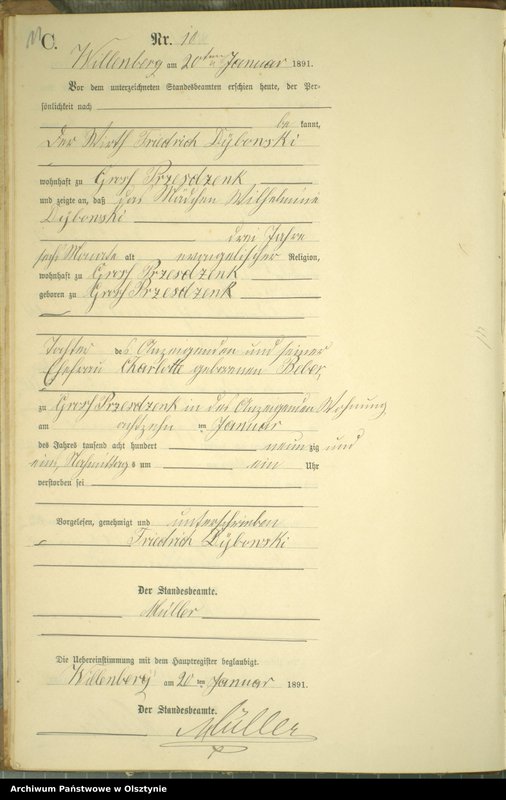 C.
Nr. 10
Willenberg am 20ten Januar 1891.
Vor dem unterzeichneten Standesbeamten erschien heute, der Per-
sönlichkeit nach
be kannt,
der Wirth Friedrich Dÿbowski
wohnhaft zu Groß Przesdzenk
und zeigte an, daß das Mädchen Wilhelmine
Dÿbowski
drei Jahre
sechs Monate alt evangelischer Religion,
wohnhaft zu Groß Przesdzenk
geboren zu Groß Przesdzenk
Tochter des Anzeigenden und seiner
Ehefrau Charlotte geborenen Beber,
zu Groß Przesdzenk in des Anzeigenden Wohnung
am achtzehn ten Januar
des Jahres tausend acht hundert neun zig und
eins, Nachmittags um ein Uhr
verstorben sei
Vorgelesen, genehmigt und unterschrieben
Friedrich Dÿbowski
Der Standesbeamte.
Müller
Die Uebereinstimmung mit dem Hauptregister beglaubigt.
Willenberg am 20 ten Januar 1891.
Der Standesbeamte.
Müller
Archiwum Państwowe w Olsztynie